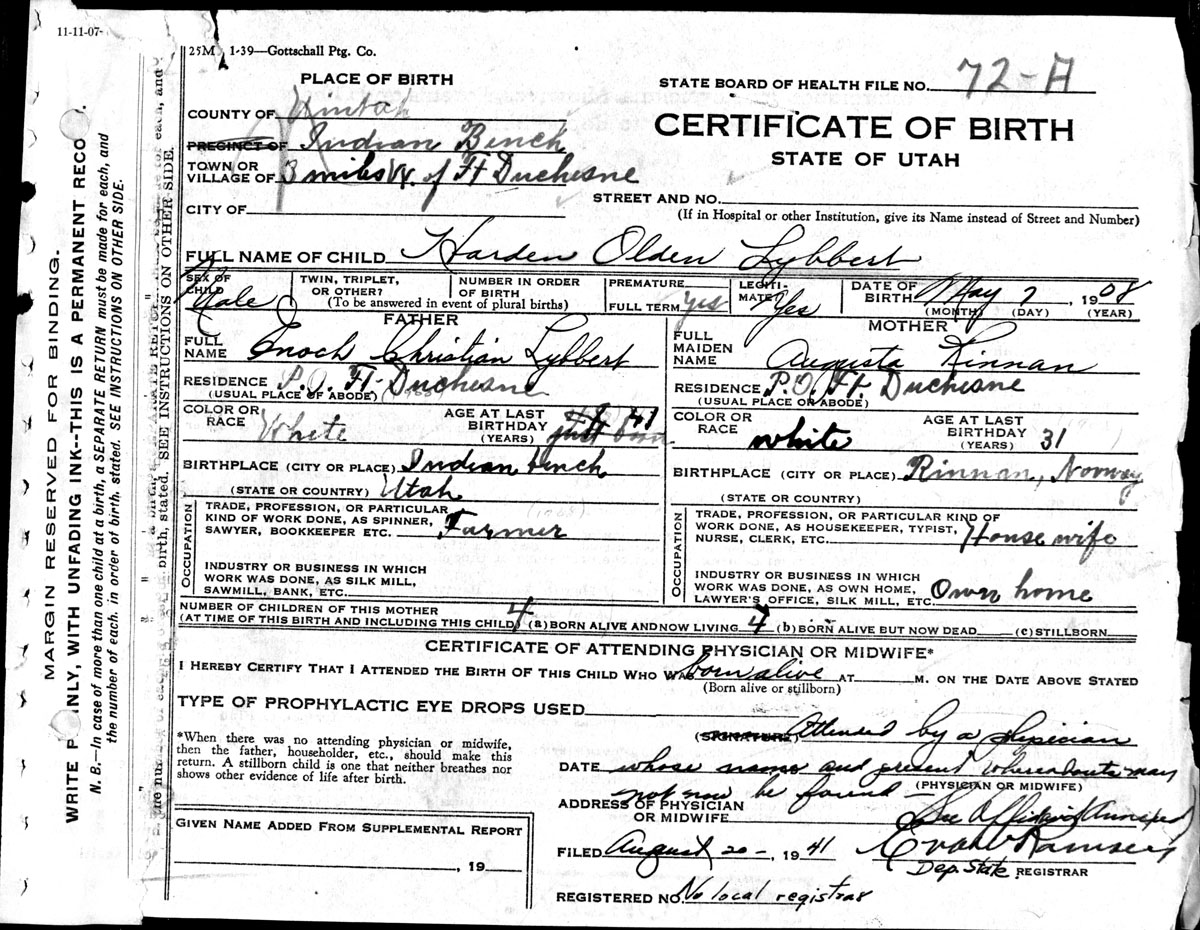 11-11-07-
25M 1-39—Gottschall Ptg. Co.
PLACE OF BIRTH
STATE BOARD OF HEALTH FILE NO. 72-A
COUNTY OF Uintah
CERTIFICATE OF BIRTH
PRECINCT OF Indian Bench
STATE OF UTAH
TOWN OR
VILLAGE OF 3 miles of Ft Duchesne
STREET AND NO.
(If in Hospital or other Institution, give its Name instead of Street and Number)
CITY OF
FULL NAME OF CHILD Harden Olden Lybbert
SEX OF
CHILD Male
TWIN, TRIPLET,
OR OTHER?
NUMBER IN ORDER
OF BIRTH
(To be answered in event of plural births)
PREMATURE
FULL TERM yes
LEGITI-
MATE? Yes
DATE OF
BIRTH May 7, 1908
(MONTH) (DAY) (YEAR)
FATHER
FULL
NAME Enoch Christian Lybbert
RESIDENCE P.O. Ft. Duchesne
(USUAL PLACE OF ABODE)
COLOR OR
RACE White
AGE AT LAST
BIRTHDAY 41
(YEARS)
BIRTHPLACE (CITY OR PLACE) Indian bench
(STATE OR COUNTRY) Utah
OCCUPATION
TRADE, PROFESSION, OR PARTICULAR
KIND OF WORK DONE, AS SPINNER,
SAWYER, BOOKKEEPER ETC. Farmer
INDUSTRY OR BUSINESS IN WHICH
WORK WAS DONE, AS SILK MILL,
SAWMILL, BANK, ETC.
MOTHER
FULL
MAIDEN
NAME Augusta Rinnan
RESIDENCE P.O. Ft. Duchesne
(USUAL PLACE OR ABODE)
COLOR OR
RACE white
AGE AT LAST
BIRTHDAY
(YEARS) 31
BIRTHPLACE (CITY OR PLACE) Rinnan, Norway
(STATE OR COUNTRY)
OCCUPATION
TRADE, PROFESSION, OR PARTICULAR KIND OF
WORK DONE, AS HOUSEKEEPER, TYPIST,
NURSE, CLERK, ETC. House wife
INDUSTRY OR BUSINESS IN WHICH
WORK WAS DONE, AS OWN HOME,
LAWYER'S OFFICE, SILK MILL, ETC. Own home
NUMBER OF CHILDREN OF THIS MOTHER
(AT TIME OF THIS BIRTH AND INCLUDING THIS CHILD) 4 (a) BORN ALIVE AND NOW LIVING 4 (b) BORN ALIVE BUT NOW DEAD (c) STILLBORN
CERTIFICATE OF ATTENDING PHYSICIAN OR MIDWIFE*
I HEREBY CERTIFY THAT I ATTENDED THE BIRTH OF THIS CHILD WHO WAS born alive AT M. ON THE DATE ABOVE STATED
(Born alive or stillborn)
TYPE OF PROPHYLACTIC EYE DROPS USED
*When there was no attending physician or midwife,
then the father, householder, etc., should make this
return. A stillborn child is one that neither breathes nor
shows other evidence of life after birth.
(SIGNATURE) Attended by a
DATE whose name and present whereabouts may
(PHYSICIAN OR MIDWIFE)
not now be found
ADDRESS OF PHYSICIAN
OR MIDWIFE
See Affidavit Annexed
GIVEN NAME ADDED FROM SUPPLEMENTAL REPORT
, 19
FILED August 20-, 1941
Ramsey
Dep. State REGISTRAR
REGISTERED NO. No local registrar
MARGIN RESERVED FOR BINDING.
WRITE PLAINLY, WITH UNFADING INK--THIS IS A PERMANENT RECO
N. B.—In case of more than one child at a birth, a SEPARATE RETURN must be made for each, and
the number of each, in order of birth, stated. SEE INSTRUCTIONS ON OTHER SIDE.
birth, stated. SEE INSTRUCTIONS ON OTHER SIDE.